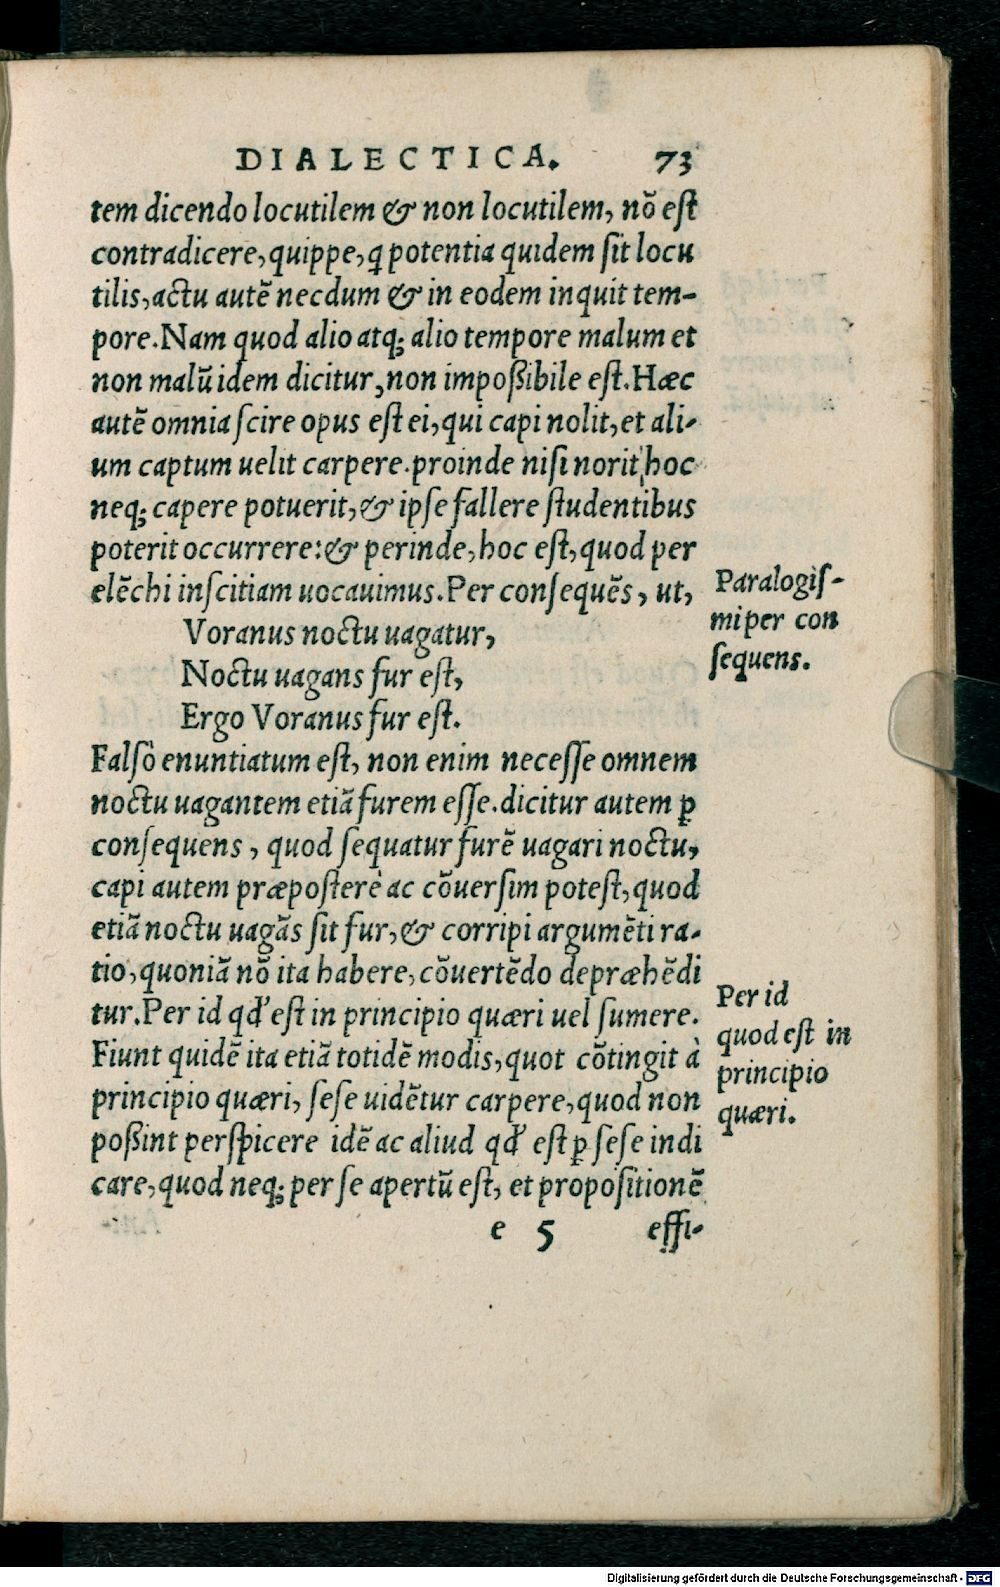 DIALECTICA. 73
tem dicendo locutilem & non locutilem, nõ est
contradicere, quippe, ꝗ potentia quidem sit locu
tilis, actu autẽ necdum & in eodem inquit tem-
pore. Nam quod alio atq; alio tempore malum et
non malũ idem dicitur, non impoßibile est. Hæc
autẽ omnia scire opus est ei, qui capi nolit, et ali-
um captum uelit carpere. proinde nisi norit hoc
neq; capere potuerit, & ipse fallere studentibus
poterit occurrere: & perinde, hoc est, quod per
elẽchi inscitiam uocauimus. Per consequẽs, ut,
Voranus noctu uagatur,
Noctu uagans fur est,
Ergo Voranus fur est.
Falsò enuntiatum est, non enim necesse omnem
noctu uagantem etiã furem esse. dicitur autem ꝑ
consequens, quod sequatur furẽ uagari noctu,
capi autem præposterè ac cõuersim potest, quod
etiã noctu uagãs sit fur, & corripi argumẽti ra-
tio, quoniã nõ ita habere, cõuertẽdo depræhẽdi
tur. Per id qď est in principio quæri uel sumere.
Fiunt quidẽ ita etiã totidẽ modis, quot cõtingit à
principio quæri, sese uidẽtur carpere, quod non
poßint perspicere idẽ ac aliud qď est ꝑ sese indi
care, quod neq; per se apertũ est, et propositionẽ
e 5 effi-
Paralogis-
mi per con
sequens.
Per id
quod est in
principio
quæri.
Digitalisierung gefördert durch die Deutsche Forschungsgemeinschaft - DFG